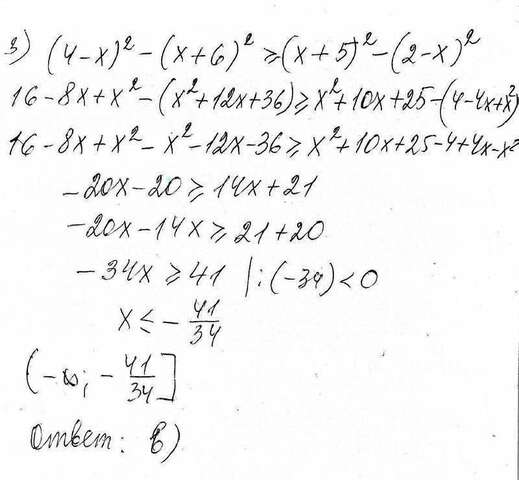 3) (4-x)² - (x+6)² ≥ (x+5)² - (2-x)²
16-8x+x² - (x²+12x+36) ≥ x²+10x+25-(4-4x+x²)
16-8x+x² - x² - 12x - 36 ≥ x²+10x+25-4+4x-x²
-20x-20 ≥ 14x+21
-20x-14x ≥ 21+20
-34x ≥ 41 |:(-34) < 0
x ≤ - 41/34
(-∞; - 41/34]
Ответ: в)